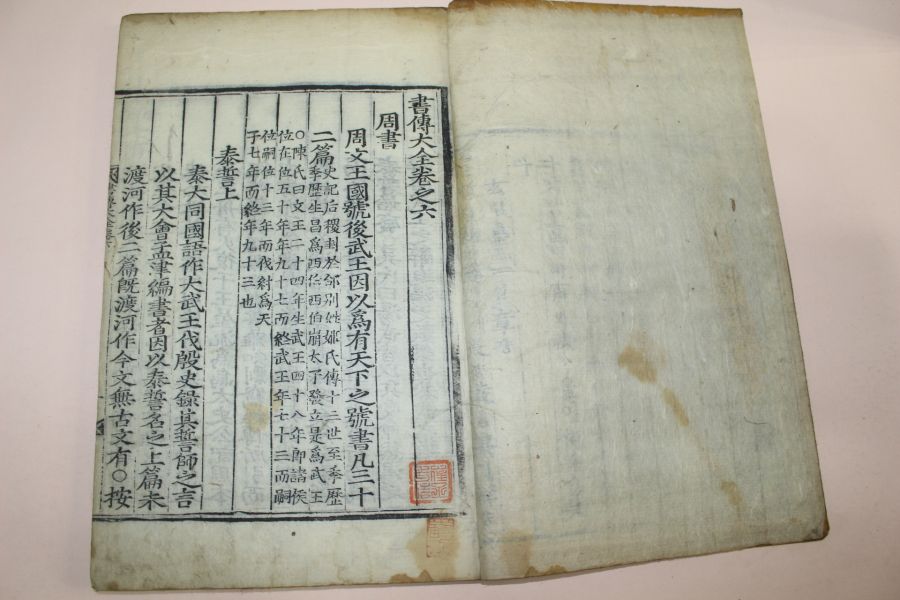 書傳大全卷之六
周書
周文王國號後武王因以爲有天下之號書凡三十
二篇史記后稷封於邰別姓姬氏傳十二世至季歷
季歷生昌爲西伯西伯崩太子發立是爲武王
○陳氏曰文王二十四年生武王四十八年即諸侯
位在位五十年年九十七而終武王年七十三而嗣
位嗣位十三年而伐紂爲天
子七年而終年九十三也
泰誓上
泰大同國語作大武王伐殷史錄其誓師之言
以其大會孟津編書者因以泰誓名之上篇未
渡河作後二篇旣渡河作今文無古文有○按